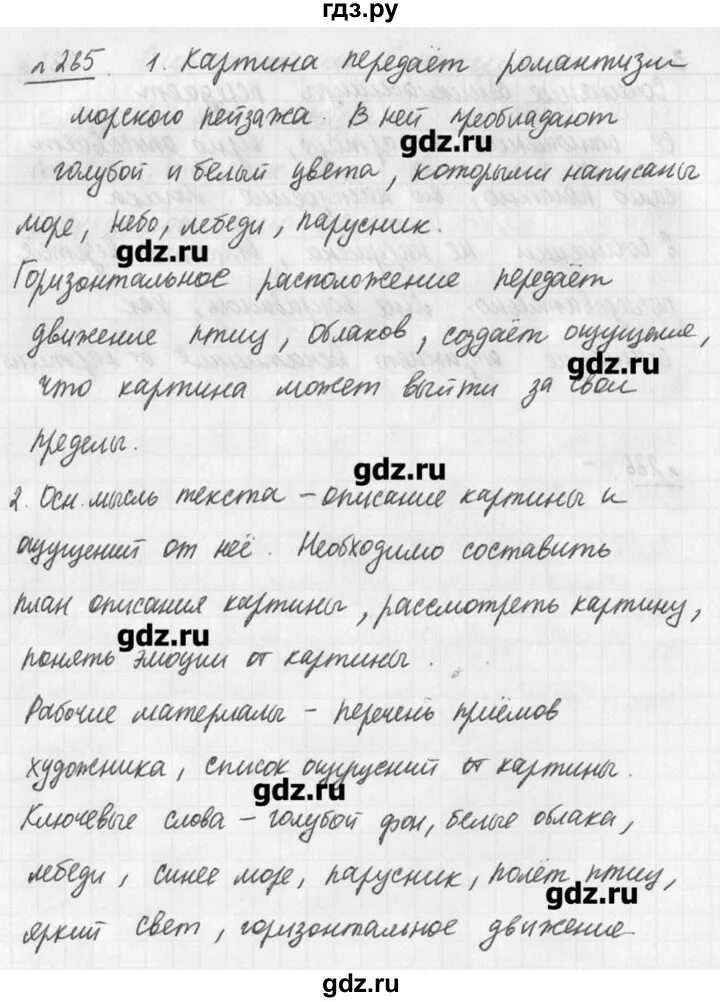 гдз.ру
№ 265. 1. Картина передаёт романтизм
морского пейзажа. В ней преобладают
gdz.ru
голубой и белый цвета, которыми написаны
море, небо, лебеди, парусник.
gdz.ru
Горизонтальное расположение передаёт
движение птиц, облаков, создаёт ощущение,
gdz.ru
что картина может выйти за свои
пределы.
gdz.ru
2. Осн. мысль текста – описание картины и
ощущений от неё. Необходимо составить
план описания картины, рассмотреть картину,
gdz.ru
понять эмоции от картины.
Рабочие материалы – перечень приёмов
художника, список ощущений от картины.
gdz.ru
Ключевые слова – голубой фон, белые облака,
лебеди, синее море, парусник, полёт птиц,
gdz.ru
яркий свет, горизонтальное движение
gdz.ru